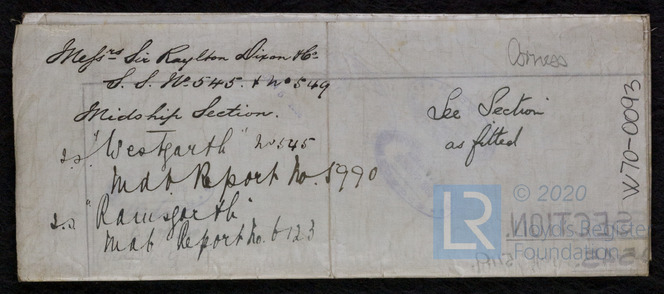 Messrs Sir Raylton Dixon & Co
S.S. No 545. & No 549
Midship Section.
S.S. "Westgarth" No 545
Mdb. Report No. 5990
S.S. "Ramsgarth"
Mdb Report No. 6123
See Section
as fitted
W70-0093
© 2020
LR
Lloyd's Register
Foundation
SECTION